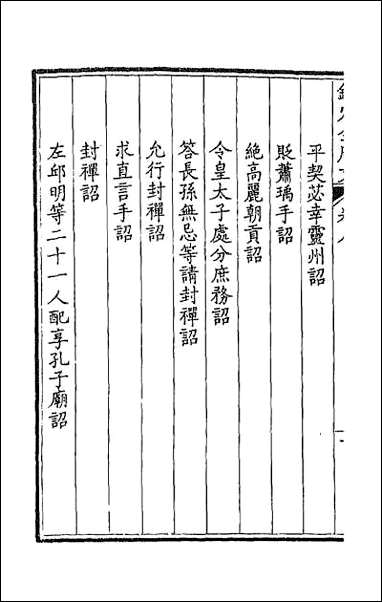 平契苾幸靈州詔
貶蕭瑀手詔
絶高麗朝貢詔
令皇太子處分庶務詔
答長孫無忌等請封禪詔
允行封禪詔
求直言手詔
封禪詔
左邱明等二十一人配享孔子廟詔